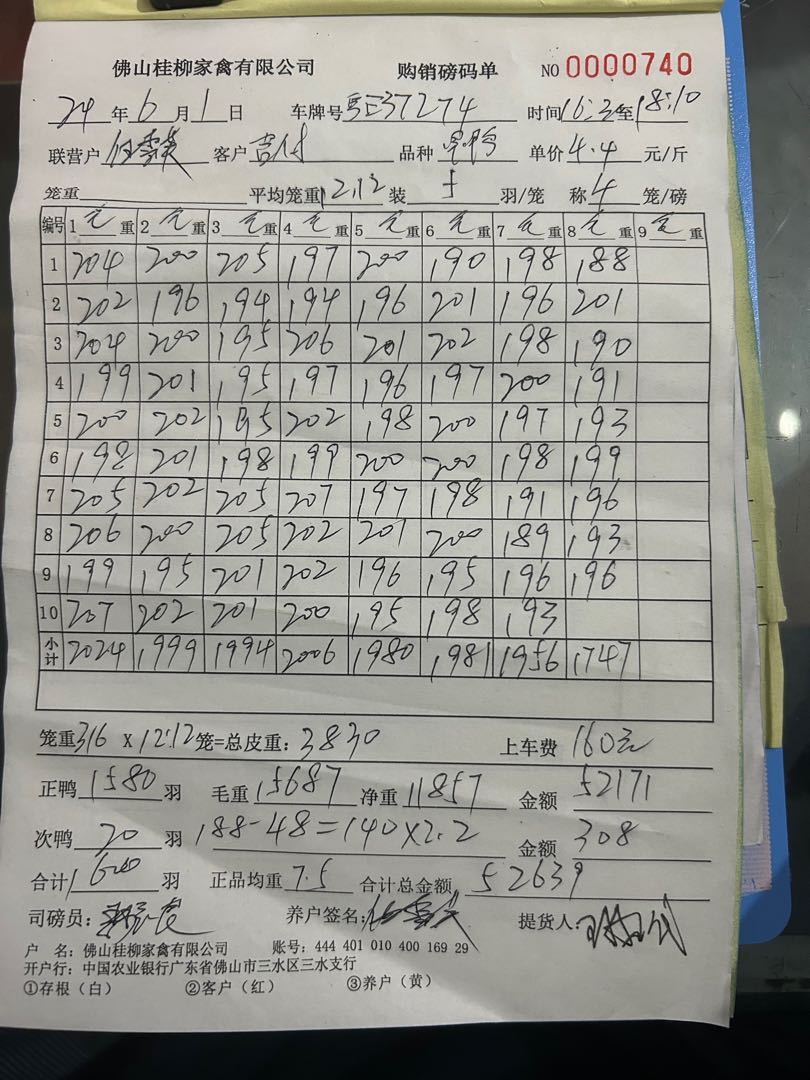 佛山桂柳家禽有限公司 购销磅码单 NO 0000740
24 年 6 月 1 日 车牌号 37274 时间 16:3 至 18:10
联营户 客户 品种 单价 4.4 元/斤
笼重 平均笼重 12.12 装 羽/笼 称 4 笼/磅
编号 1 毛重 2 毛重 3 毛重 4 毛重 5 毛重 6 毛重 7 毛重 8 毛重 9 重
1 204 200 205 197 200 190 198 188
2 202 196 194 194 196 201 196 201
3 204 200 195 206 201 202 198 190
4 199 201 195 197 196 197 200 191
5 200 202 195 202 198 200 197 193
6 198 201 198 199 200 200 198 199
7 205 202 205 207 197 198 191 196
8 206 200 205 202 201 200 189 193
9 199 195 201 202 196 195 196 196
10 207 202 201 200 195 198 193
小计 2024 1999 1994 2006 1980 1981 1956 1747
笼重 316 X 12.12 笼=总皮重: 3830 上车费 160元
正鸭 1580 羽 毛重 15687 净重 11857 金额 52171
次鸭 20 羽 188-48=140×2.2 金额 308
合计 1600 羽 正品均重 7.5 合计总金额 52639
司磅员: 养户签名: 提货人:
户 名: 佛山桂柳家禽有限公司 账号: 444 401 010 400 169 29
开户行: 中国农业银行广东省佛山市三水区三水支行
①存根(白) ②客户(红) ③养户(黄)